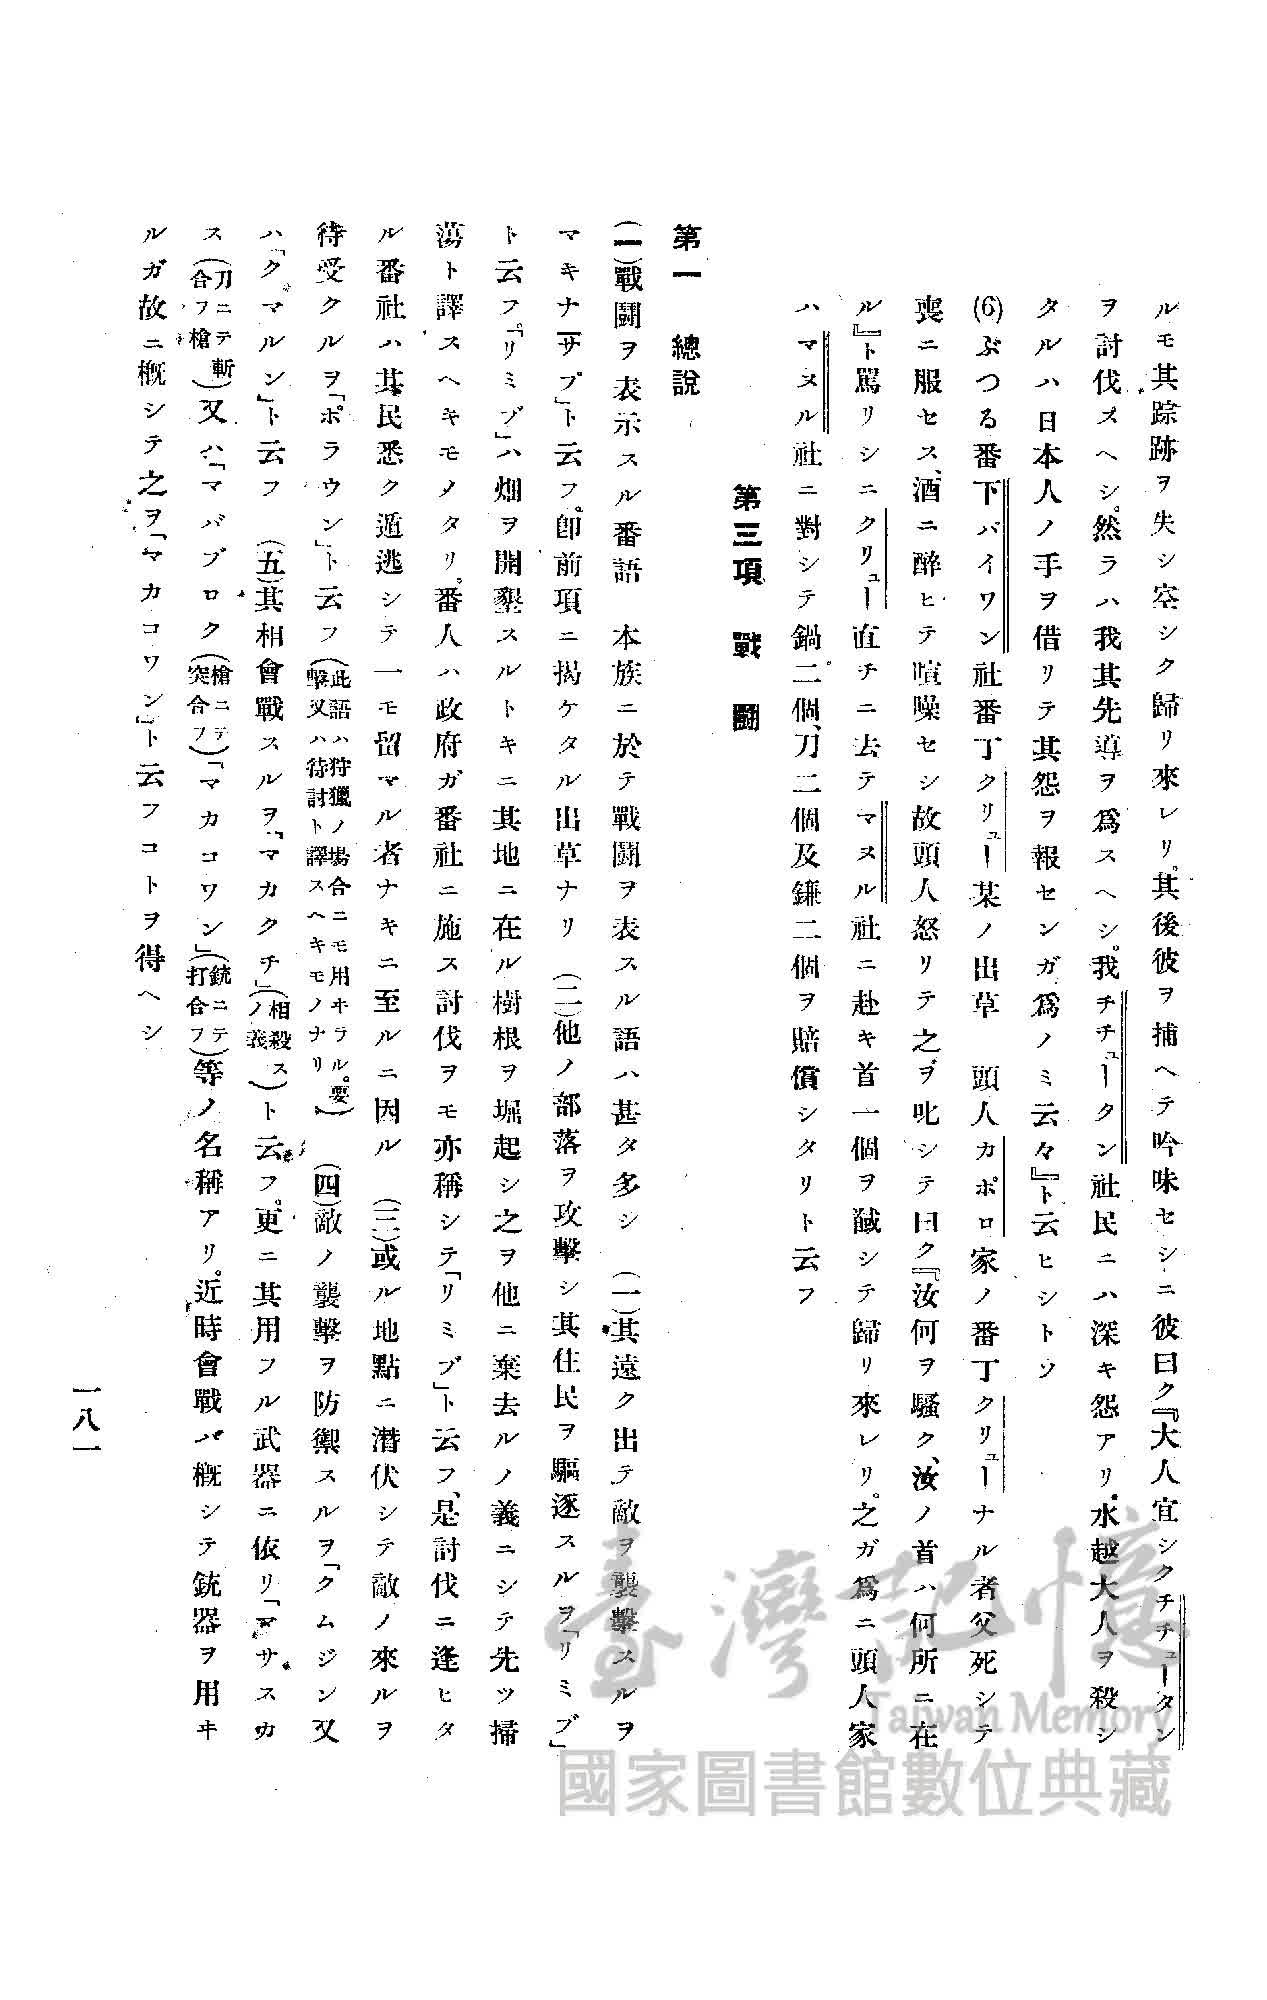 ルモ其踪跡ヲ失シ空シク歸リ來レリ。其後彼ヲ捕ヘテ吟味セシニ彼曰ク『大人宜シクチチュータン
ヲ討伐スヘシ。然ラハ我其先導ヲ爲スヘシ。我チチュークン社民ニハ深キ怨アリ、水越大人ヲ殺シ
タルハ日本人ノ手ヲ借リテ其怨ヲ報センガ爲ノミ云々』ト云ヒシトソ
(6)ぶつる番下パイワン社番丁クリュー某ノ出草 頭人カポロ家ノ番丁クリューナル者父死シテ
喪ニ服セス、酒ニ醉ヒテ喧噪セシ故頭人怒リテ之ヲ叱シテ曰ク『汝何ヲ騷ク、汝ノ首ハ何所ニ在
ル』ト罵リシニクリュー直チニ去テマヌル社ニ赴キ首一個ヲ馘シテ歸リ來レリ。之ガ爲ニ頭人家
ハマヌル社ニ對シテ鍋二個、刀二個及鎌二個ヲ賠償シタリト云フ
第三項 戰鬪
第一 總說
(一)戰鬪ヲ表示スル番語 本族ニ於テ戰鬪ヲ表スル語ハ甚タ多シ (一)其遠ク出テ敵ヲ襲擊スルヲ
マキナ「サブ」ト云フ。卽前項ニ揭ケタル出草ナリ (二)他ノ部落ヲ攻擊シ其住民ヲ驅逐スルヲ「リミブ」
ト云フ。「リミブ」ハ畑ヲ開墾スルトキニ其地ニ在ル樹根ヲ堀起シ之ヲ他ニ棄去ルノ義ニシテ先ツ掃
蕩ト譯スヘキモノタリ。番人ハ政府ガ番社ニ施ス討伐ヲモ亦稱シテ「リミブ」ト云フ、是討伐ニ逢ヒタ
ル番社ハ其民悉ク遁逃シテ一モ留マル者ナキニ至ルニ因ル (三)或ル地點ニ潛伏シテ敵ノ來ルヲ
待受クルヲ「ポラウン」ト云フ(此語ハ狩獵ノ場合ニモ用ヰラル。要擊又ハ待討ト譯スヘキモノナリ) (四)敵ノ襲擊ヲ防禦スルヲ「クムジン又
ハ「クマルン」ト云フ (五)其相會戰スルヲ「マカクチ」(相殺スノ義)ト云フ。更ニ其用フル武器ニ依リ「マサスカ
ス(刀ニテ斬合フ槍)又ハ「マバブロク(槍ニテ突合フ)「マカコワン」(銃ニテ打合フ)等ノ名稱アリ。近時會戰バ槪シテ銃器ヲ用ヰ
ルガ故ニ槪シテ之ヲ「マカコワン」ト云フコトヲ得ヘシ
一八一
臺灣記憶
Taiwan Memory
國家圖書館數位典藏